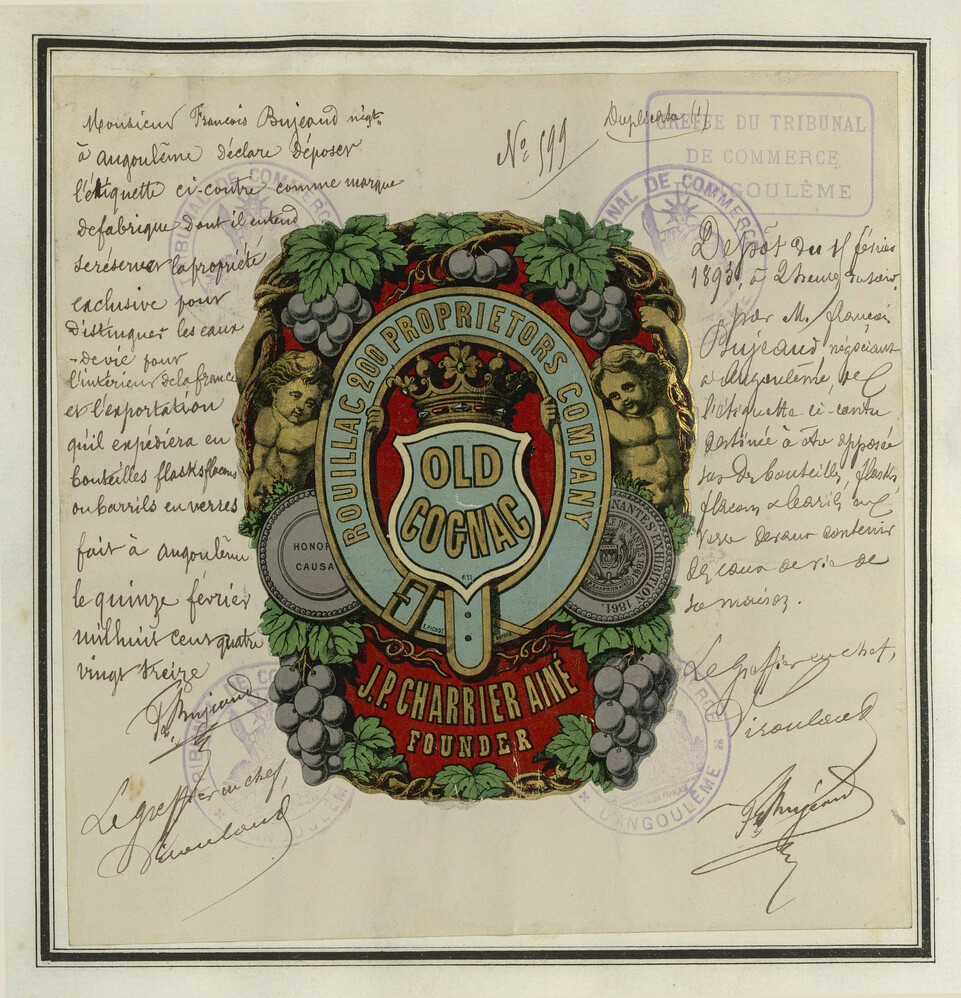 Monsieur François Bujeaud négt.
à angoulême déclare déposer
l'étiquette ci-contre comme marque
defabrique dont il entend
seréserver la propriété
exclusive pour
distinguer les eaux
-devie pour
l'intérieur delafrance
et l'exportation
qu'il expédiera en
bouteilles flasks flacons
oubarrils en verres
fait à angoulême
le quinze février
mil huit cent quatre
vingt treize
Fs Bujeaud
Le greffier en chef,
No 599
Duplicata (1)
GREFFE DU TRIBUNAL
DE COMMERCE
D'ANGOULÊME
TRIBUNAL DE COMMERCE
TRIBUNAL DE COMMERCE
Dépôt du 15 février
1893, à 2 heures du soir,
par M. françois
Bujeaud, négociant
à Angoulême, de
l'étiquette ci-contre
destinée à être apposée
sur des bouteilles, flasks,
flacons & barils en
verre devant contenir
des eaux de vie de
sa maison.
Le Greffier en chef,
Fs Bujeaud
ROUILLAC 200 PROPRIETORS COMPANY
OLD
COGNAC
HONOR
CAUSA
NANTES EXHIBITION 1861.
J.P. CHARRIER AINÉ
FOUNDER
TRIBUNAL DE COMMERCE
D'ANGOULÊME
D'ANGOULÊME